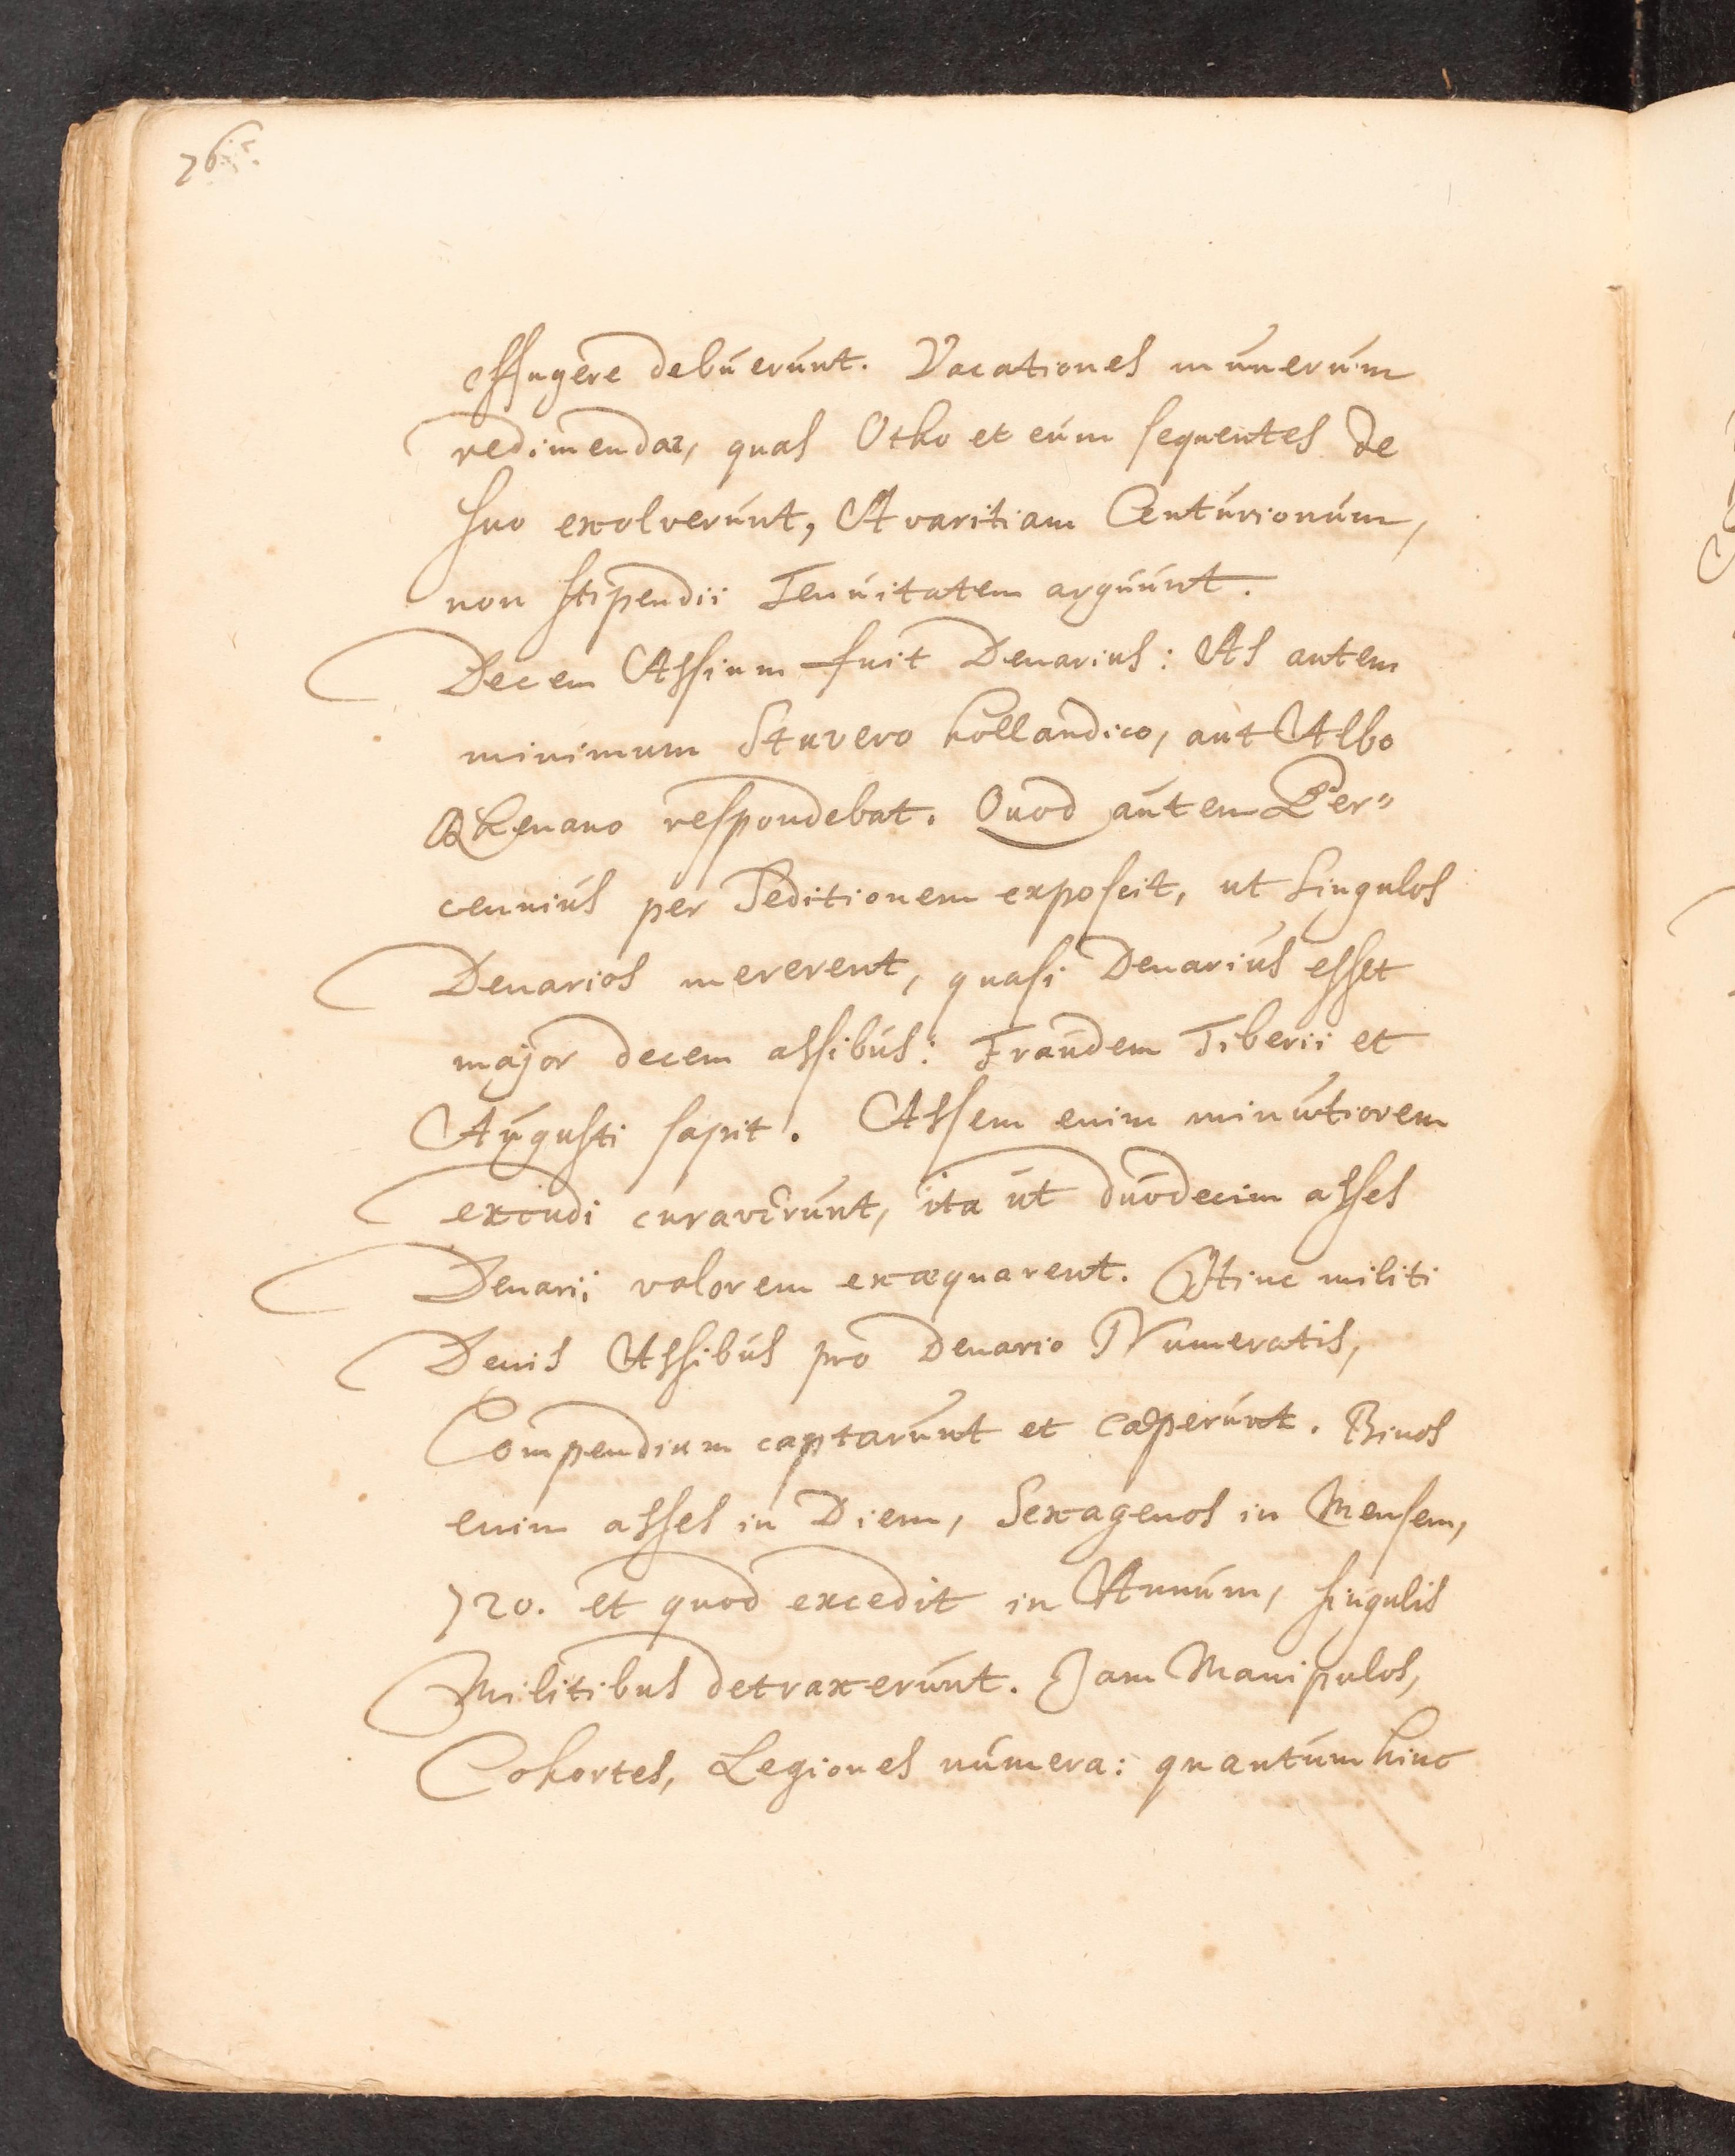 76
effugere debuerunt. Vacationes munerum
redimendae, quas Otho et eum sequentes de
suo exolverunt, Avaritiam Centurionum,
non stipendii Tenuitatem arguunt.
Decem Assium fuit Denarius: As autem
minimum Stuvero hollandico, aut Albo
Rhenano respondebat. Quod autem Per"
cennius per Seditionem exposcit, ut singulos
Denarios mererent, quasi Denarius esset
major decem assibus: Fraudem Tiberii et
Augusti sapit. Assem enim minutiorem
excudi curaverunt, ita ut duodecim asses
Denarii valorem exaequarent. Hinc militi
Denis Assibus pro Denario Numeratis,
Compendium captarunt et caeperunt. Binos
enim asses in Diem, Sexagenos in Mensem,
720. et quod excedit in Annum, singulis
Militibus detraxerunt. Jam Manipulos,
Cohortes, Legiones numera: quantum hinc